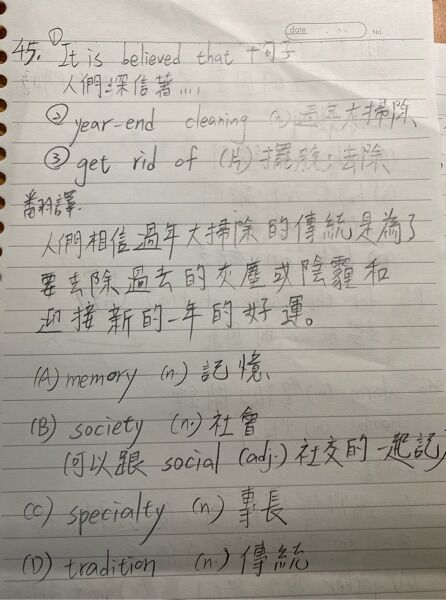 date
No.
45. ① It is believed that + 句子
人們深信著......
② year-end cleaning (n) 過年大掃除
③ get rid of (片) 擺脫；去除
翻譯.
人們相信過年大掃除的傳統是為了
要去除過去的灰塵或陰霾和
迎接新的一年的好運。
(A) memory (n.) 記憶
(B) society (n.) 社會
(可以跟 social (adj.) 社交的一起記)
(C) specialty (n.) 專長
(D) tradition (n.) 傳統